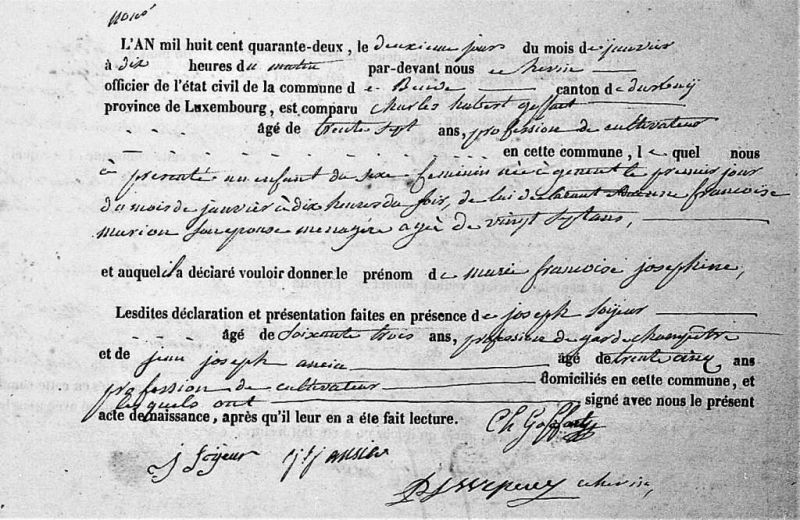 L'AN mil huit cent quarante-deux, le deuxieme jour du mois de janvier
à dix heures du matin par-devant nous echevin
officier de l'état civil de la commune de Bende canton de durbuy
province de Luxembourg, est comparu Charles hubert goffart
âgé de trente sept ans, profession de cultivateur
en cette commune, le quel nous
a presenté un enfant du sexe feminin née à le premier jour
du mois de janvier à dix heures du soir, de lui declarant francoise
marion son epouse menagere agée de vingt sept ans,
et auquel il a déclaré vouloir donner le prénom de marie francoise josephine,
Lesdites déclaration et présentation faites en présence de joseph soijeur
âgé de soixante trois ans, profession de garde champêtre
et de jean joseph ancia âgé de trente cinq ans
profession de cultivateur domiciliés en cette commune, et
lesquels ont signé avec nous le présent
acte de naissance, après qu'il leur en a été fait lecture. Ch Goffart
j soijeur j j ancia
echevin,